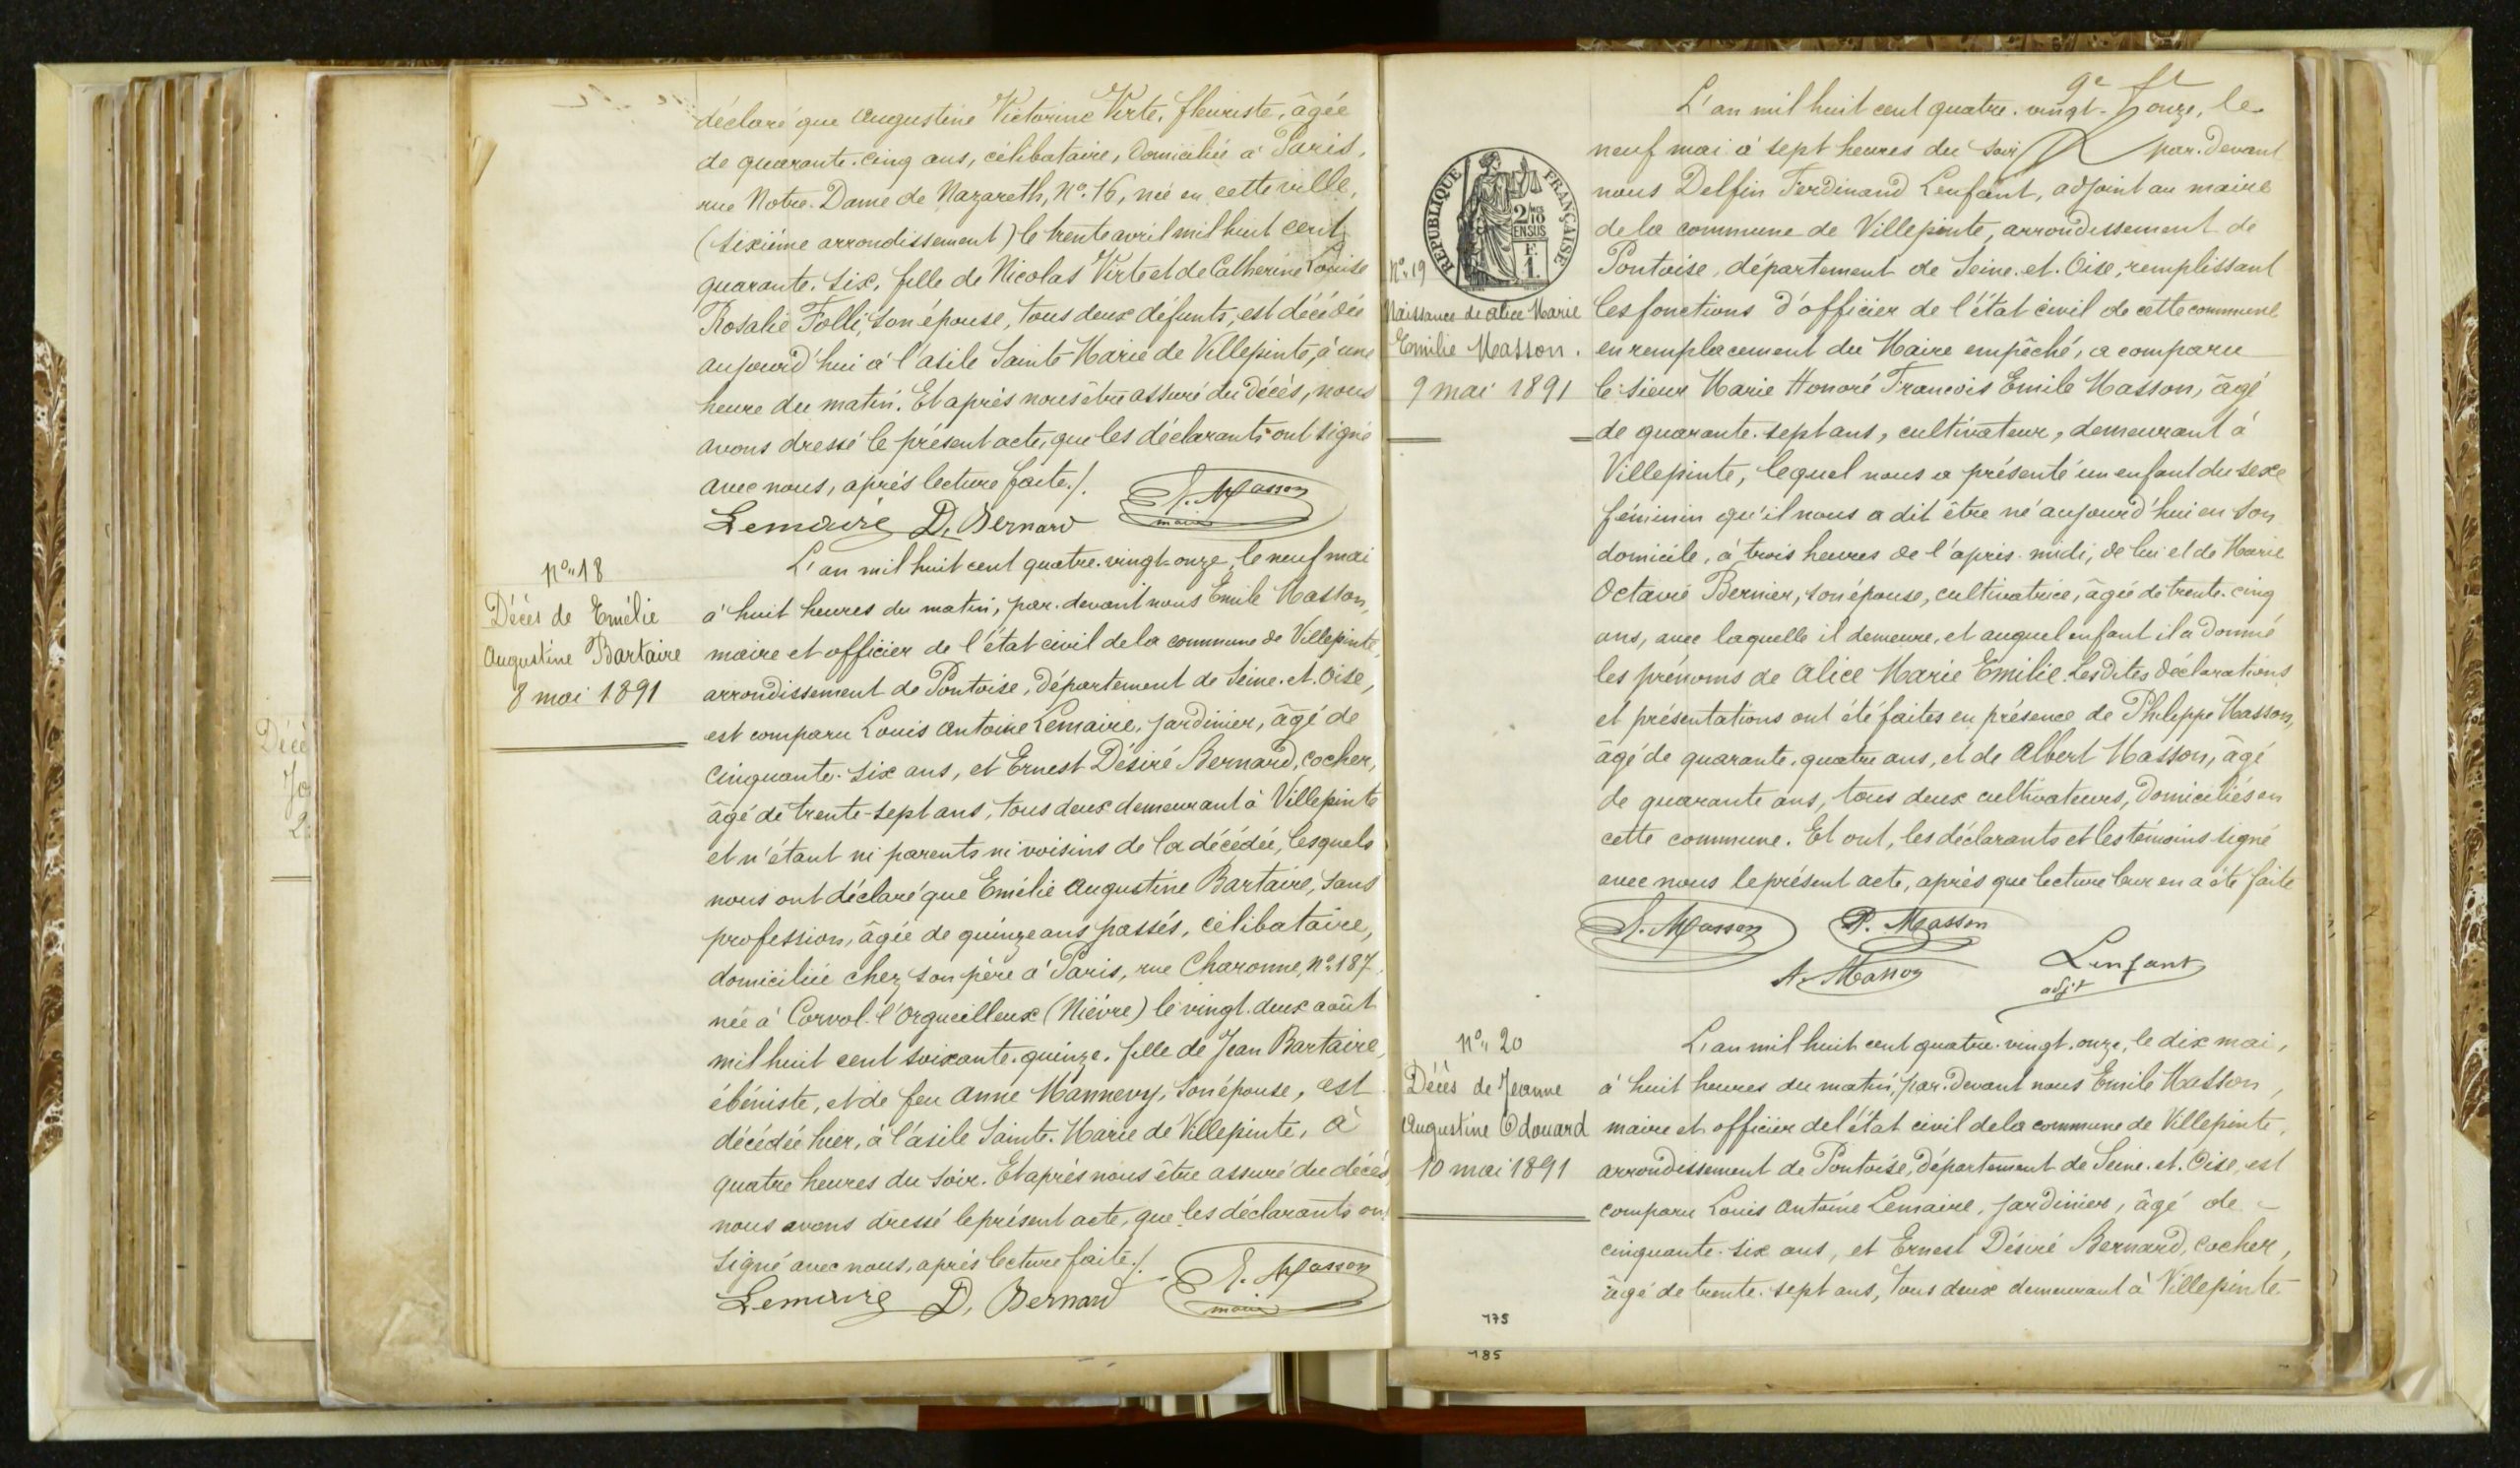 déclaré que Augustine Victorine Virte, fleuriste, âgée
de quarante-cinq ans, célibataire, domiciliée à Paris,
rue Notre-Dame de Nazareth, N° 16, née en cette ville,
(sixième arrondissement) le trente avril mil huit cent
quarante-six, fille de Nicolas Virte et de Catherine Louise
Rosalie Folli, son épouse, tous deux défunts, est décédée
aujourd'hui à l'asile Sainte-Marie de Villepinte, à une
heure du matin. Et après nous être assuré du décès, nous
avons dressé le présent acte, que les déclarants ont signé
avec nous, après lecture faite./.
Lemaire D. Bernard E. Masson
maire
N° 18
Décès de Emélie
Augustine Bartaire
8 mai 1891
L'an mil huit cent quatre-vingt-onze, le neuf mai
à huit heures du matin, par-devant nous Emile Masson,
maire et officier de l'état civil de la commune de Villepinte,
arrondissement de Pontoise, département de Seine-et-Oise,
est comparu Louis Antoine Lemaire, jardinier, âgé de
cinquante-six ans, et Ernest Désiré Bernard, cocher,
âgé de trente-sept ans, tous deux demeurant à Villepinte
et n'étant ni parents ni voisins de la décédée, lesquels
nous ont déclaré que Emélie Augustine Bartaire, sans
profession, âgée de quinze ans passés, célibataire,
domiciliée chez son père à Paris, rue Charonne, N° 187,
née à Corvol-l'Orgueilleux (Nièvre) le vingt-deux août
mil huit cent soixante-quinze, fille de Jean Bartaire,
ébéniste, et de feu Anne Mannevy, son épouse, est
décédée hier, à l'asile Sainte-Marie de Villepinte, à
quatre heures du soir. Et après nous être assuré du décès,
nous avons dressé le présent acte, que les déclarants ont
signé avec nous, après lecture faite./.
Lemaire D. Bernard E. Masson
maire
Décè
Jo
2
L'an mil huit cent quatre-vingt-onze, le
neuf mai à sept heures du soir par-devant
nous Delfin Ferdinand Lenfant, adjoint au maire
de la commune de Villepinte, arrondissement de
Pontoise, département de Seine-et-Oise, remplissant
les fonctions d'officier de l'état civil de cette commune
en remplacement du Maire empêché, a comparu
le sieur Marie Honoré François Emile Masson, âgé
de quarante-sept ans, cultivateur, demeurant à
Villepinte, lequel nous a présenté un enfant du sexe
féminin qu'il nous a dit être né aujourd'hui en son
domicile, à trois heures de l'après-midi, de lui et de Marie
Octavie Bernier, son épouse, cultivatrice, âgée de trente-cinq
ans, avec laquelle il demeure, et auquel enfant il a donné
les prénoms de Alice Marie Emilie. Les dites déclarations
et présentations ont été faites en présence de Philippe Masson,
âgé de quarante-quatre ans, et de Albert Masson, âgé
de quarante ans, tous deux cultivateurs, domiciliés en
cette commune. Et ont, les déclarants et les témoins signé
avec nous le présent acte, après que lecture leur en a été faite
E. Masson P. Masson
A. Masson Lenfant
adjt
RÉPUBLIQUE FRANÇAISE
2/10
EN SUS
F.
1.
N° 19
Naissance de Alice Marie
Emilie Masson.
9 mai 1891
N° 20
Décès de Jeanne
Augustine Odouard
10 mai 1891
L'an mil huit cent quatre-vingt-onze, le dix mai,
à huit heures du matin, par-devant nous Emile Masson,
maire et officier de l'état civil de la commune de Villepinte,
arrondissement de Pontoise, département de Seine-et-Oise, est
comparu Louis Antoine Lemaire, jardinier, âgé de
cinquante-six ans, et Ernest Désiré Bernard, cocher,
âgé de trente-sept ans, tous deux demeurant à Villepinte
175
185